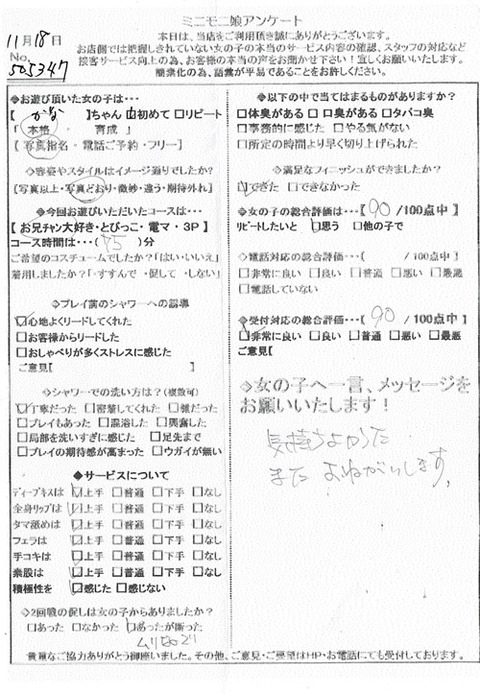 ミニモニ娘アンケート
11月18日
No.505347
本日は、当店をご利用頂き誠にありがとうございます。
お店側では把握しきれていない女の子の本当のサービス内容の確認、スタッフの対応など
接客サービス向上の為、お客様の本当の声をお聞かせ下さい！宜しくお願いいたします。
簡素化の為、語彙が平易であることをお許しください。
◇お遊び頂いた女の子は・・・
【 かな 】ちゃん ☑初めて □リピート
『 本格 ・ 育成 』
【 写真指名 ・ 電話ご予約 ・ フリー】
◇容姿やスタイルはイメージ通りでしたか？
【写真以上・写真どおり・微妙・違う・期待外れ】
◇今回お遊びいただいたコースは…
【お兄チャン大好き・とびっこ・電マ・3P】
コース時間は・・・(75)分
ご希望のコスチュームでしたか？「はい・いいえ」
着用しましたか？「すすんで ・促して ・しない」
◇プレイ前のシャワーへの誘導
☑心地よくリードしてくれた
□お客様からリードした
□おしゃべりが多くストレスに感じた
ご意見【 】
◇シャワーでの洗い方は？（複数可）
☑丁寧だった □密着してくれた □雑だった
□プレイもあった □混浴した □興奮した
□局部を洗いすぎに感じた □足先まで
□プレイの期待感が高まった □ウガイが無い
◆サービスについて
ディープキスは ☑上手 □普通 □下手 □なし
全身リップは ☑上手 □普通 □下手 □なし
タマ舐めは ☑上手 □普通 □下手 □なし
フェラは ☑上手 □普通 □下手 □なし
手コキは ☑上手 □普通 □下手 □なし
素股は ☑上手 □普通 □下手 □なし
積極性を ☑感じた □感じない
◇2回戦の促しは女の子からありましたか？
□あった □なかった ☑あったが断った
◇以下の中で当てはまるものがありますか？
□体臭がある □口臭がある □タバコ臭
□事務的に感じた □やる気がない
□所定の時間より早く切り上げられた
◇満足なフィニッシュができましたか？
☑できた □できなかった
◇女の子の総合評価は・・・【 90 /100点中】
リピートしたいと ☑思う □他の子で
◇電話対応の総合評価・・・【 /100点中】
□非常に良い □良い □普通 □悪い □最悪
□電話していない
◇受付対応の総合評価・・・【 90 /100点中】
☑非常に良い □良い □普通 □悪い □最悪
ご意見【 】
◇女の子へ一言、メッセージを
お願いいたします！
気持ちよかった
またおねがいします。
貴重なご協力ありがとう御座いました。その他、ご意見・ご要望はHP・お電話にても受付しております。